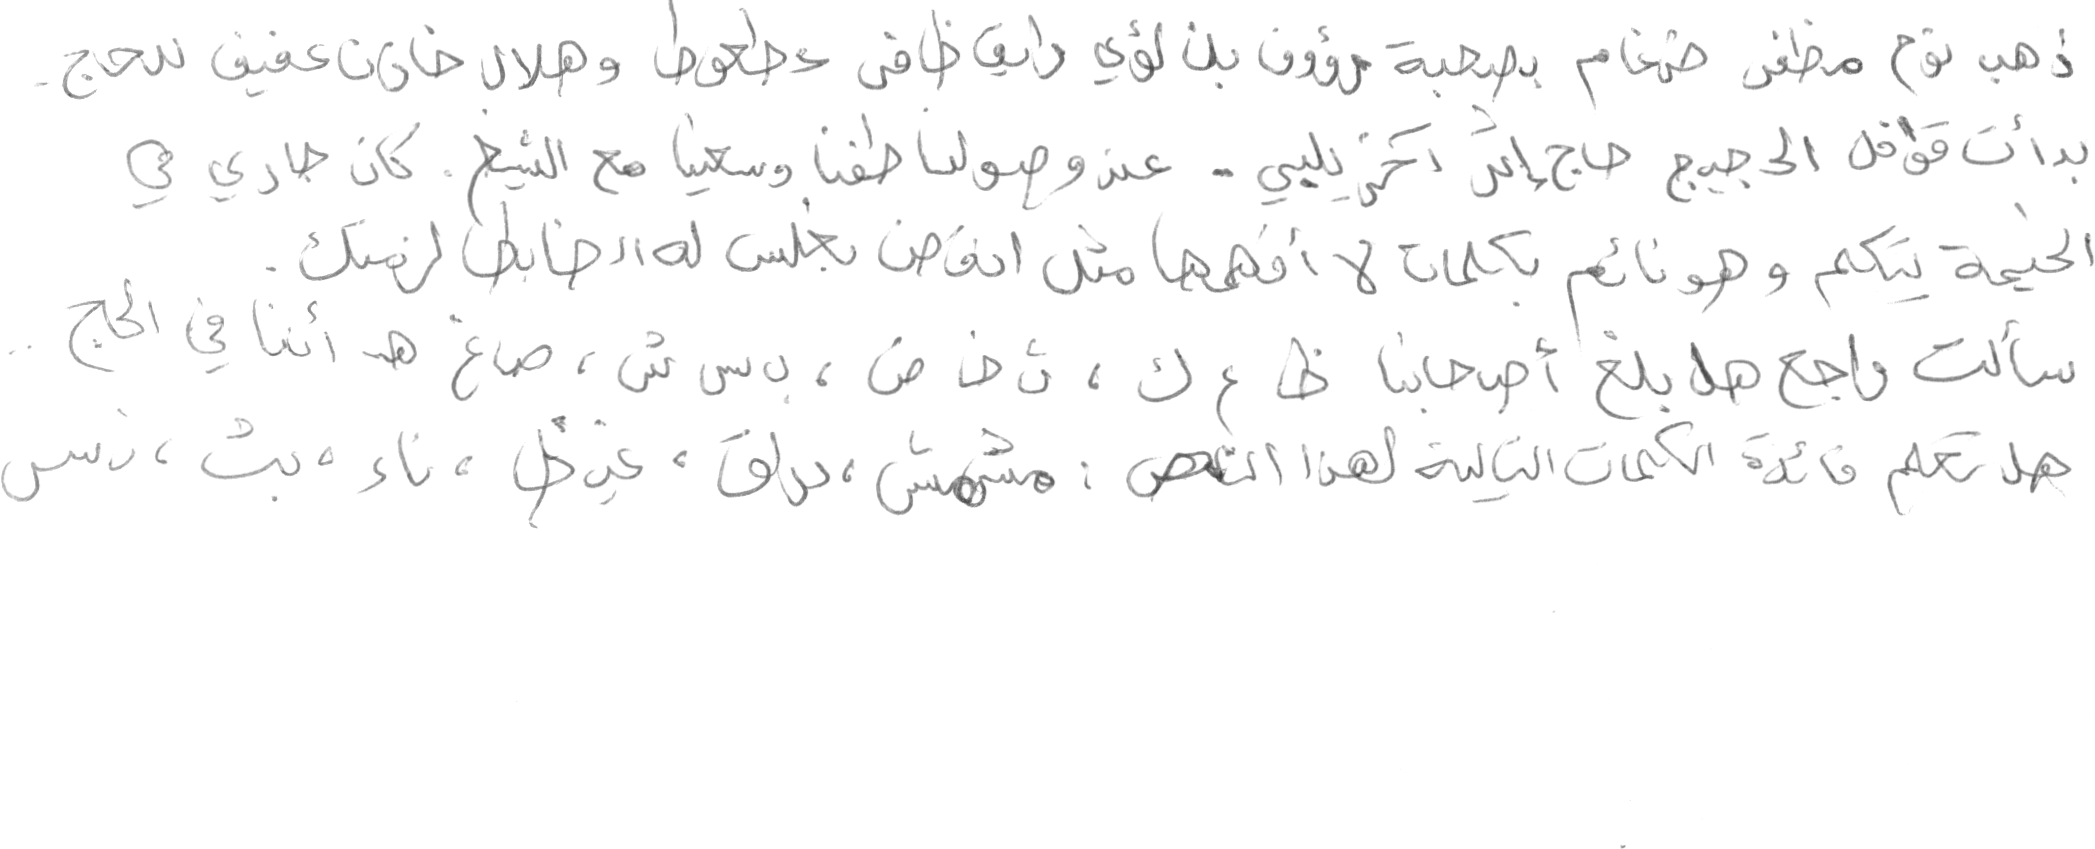 ذهب نوح مظفر ضرغام بصحبة رؤوف بن لؤي رايق ظافر عطعوط وهلال خان عفيف للحج.
بدأت قوافل الحجيج حاج إثر آخر يلبي.. عند وصولنا طفنا وسعينا مع الشيخ. كان جاري في
الخيمة يتكلم وهو نائم بكلمات لا أفهمها مثل انقاض يجلس له الضابط لزمتك.
سألت راجح هل بلغ أصحابنا ظ ع ك ، ث خا ض ، ب س ش ، صاغ هـ أننا في الحج ..
هل تعلم فائدة الكلمات التالية لهذا النص : مشمش ، ، ، ناء ، بث ،